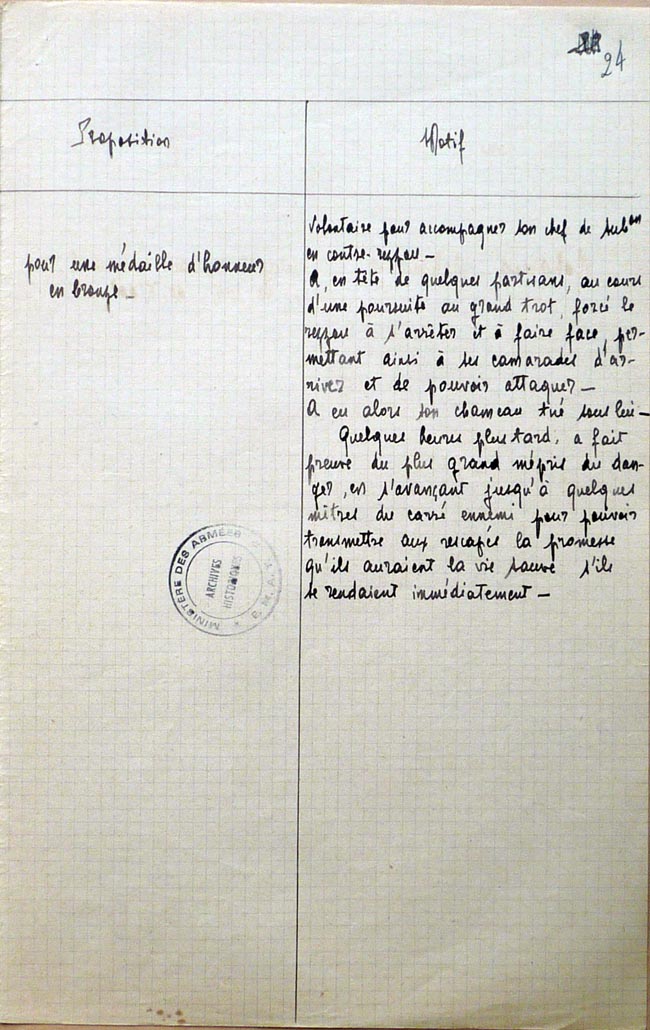 24
Proposition
Motif
pour une médaille d'honneur
en bronze -
Volontaire pour accompagner son chef de subon
en contre-rezzou -
A, en tête de quelques partisans, au cours
d'une poursuite au grand trot, forcé le
rezzou à s'arrêter et à faire face, per-
mettant ainsi à ses camarades d'ar-
river et de pouvoir attaquer -
A eu alors son chameau tué sous lui -
Quelques heures plus tard, a fait
preuve du plus grand mépris du dan-
ger, en s'avançant jusqu'à quelques
mètres du carré ennemi pour pouvoir
transmettre aux rescapés la promesse
qu'ils auraient la vie sauve s'ils
se rendaient immédiatement -
MINISTERE DES ARMÉES
ARCHIVES
HISTORIQUES